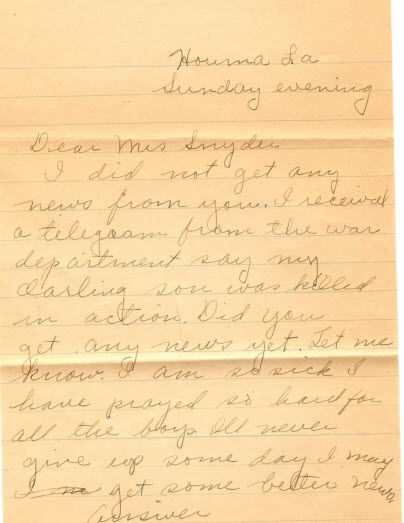 Houma La
Sunday evening
Dear Mrs Snyder
I did not get any
news from you. I received
a telegram from the war
department say my
darling son was killed
in action. Did you
get any news yet. Let me
know. I am so sick I
have prayed so hard for
all the boys. Ill never
give up some day I may
get some better news
answer